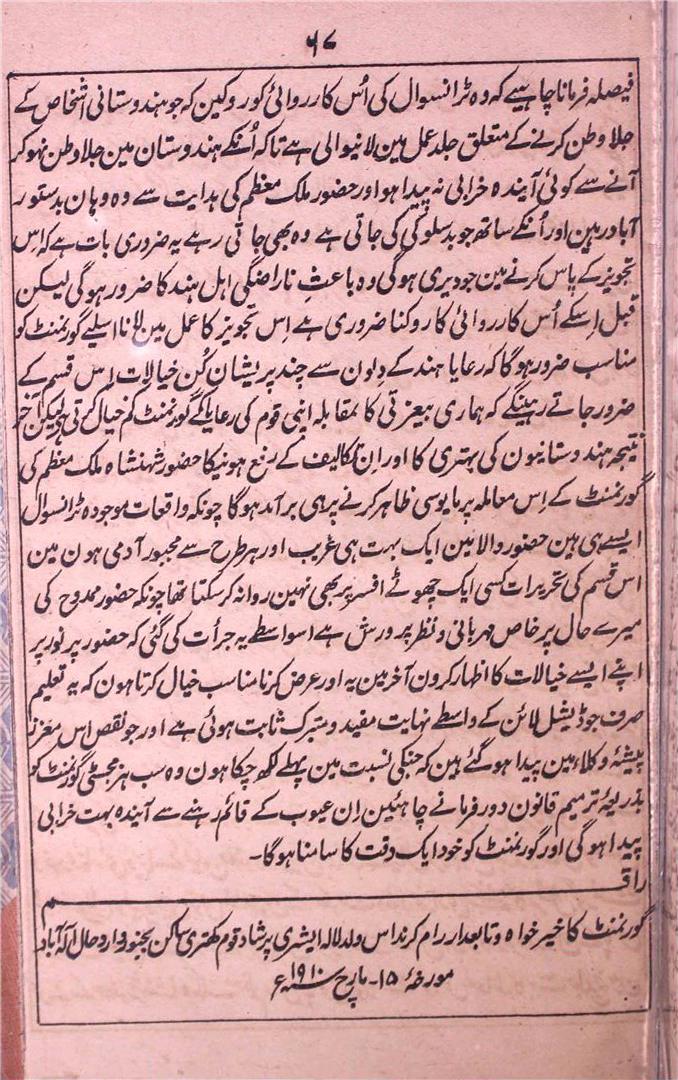 ۶۷
فیصلہ فرمانا چاہیے کہ وہ ٹرانسوال کی اُس کارروائی کو روکین کہ جو ہندوستانی اشخاص کے
جلا وطن کرنے کے متعلق جلد عمل مین لانیوالی ہے تاکہ اُنکے ہندوستان مین جلا وطن نہو کر
آنے سے کوئی آیندہ خرابی نہ پیدا ہو اور حضور ملک معظم کی ہدایت سے وہ وہان بدستور
آباد رہین اور اُنکے ساتھ جو بدسلوکی کی جاتی ہے وہ بھی جاتی رہے یہ ضروری بات ہے کہ اس
تجویز کے پاس کرنے مین جو دیری ہوگی وہ باعثِ ناراضگی اہل ہند کا ضرور ہوگی لیکن
قبل اِسکے اُس کارروائی کا روکنا ضروری ہے اِس تجویز کا عمل مین لانا اسلیے گورنمنٹ کو
مناسب ضرور ہوگا کہ رعایا ہند کے دِلون سے چند پریشان کُن خیالات اِس قسم کے
ضرور جاتے رہینگے کہ ہماری بیعزتی کا مقابلہ اپنی قوم کی رعایا کے گورنمنٹ کم خیال کرتی ہے لیکن آخر
نتیجہ ہندوستانیون کی بہتری کا اور اِن تکالیف کے رفع ہونیکا حضور شہنشاہ ملک معظم کی
گورنمنٹ کے اِس معاملہ پر مایوسی ظاہر کرنے پر ہی برآمد ہوگا چونکہ واقعات موجودہ ٹرانسوال
ایسے ہی ہین حضور والا مین ایک بہت ہی غریب اور ہر طرح سے مجبور آدمی ہون مین
اس قسم کی تحریرات کسی ایک چھوٹے افسر پر بھی نہین روانہ کرسکتا تھا چونکہ حضور ممدوح کی
میرے حال پر خاص مہربانی و نظر پرورش ہے اسواسطے یہ جرأت کی گئی کہ حضور پر نور پر
اپنے ایسے خیالات کا اظہار کرون آخر مین یہ اور عرض کرنا مناسب خیال کرتا ہون کہ یہ تعلیم
صرف جوڈیشل لائن کے واسطے نہایت مفید و متبرک ثابت ہوئی ہے اور جو نقص اس معزز
پیشۂ وکلاء مین پیدا ہوگئے ہین کہ جنکی نسبت مین پہلے لکھ چکا ہون وہ سب ہز مجسٹی گورنمنٹ کو
بذریعۂ ترمیم قانون دور فرمانے چاہئین اِن عیوب کے قائم رہنے سے آیندہ بہت خرابی
پیدا ہوگی اور گورنمنٹ کو خود ایک دقت کا سامنا ہوگا۔
راقم
گورنمنٹ کا خیر خواہ و تابعدار رام کرنداس ولد لالہ ایشری پرشاد قوم کھتری ساکن بجنور وارد حال الہ آباد
مورخۂ ۱۵۔ مارچ سنہ ۱۹۱۰ء